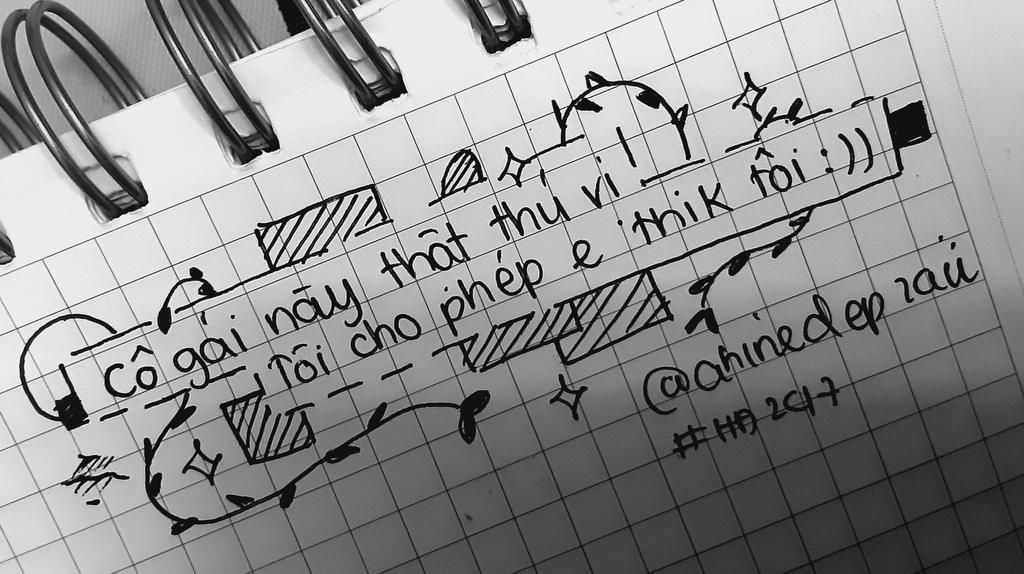 Cô gái này thật thú vị !
Tôi cho phép e thik tôi :))
@aninedepzaii